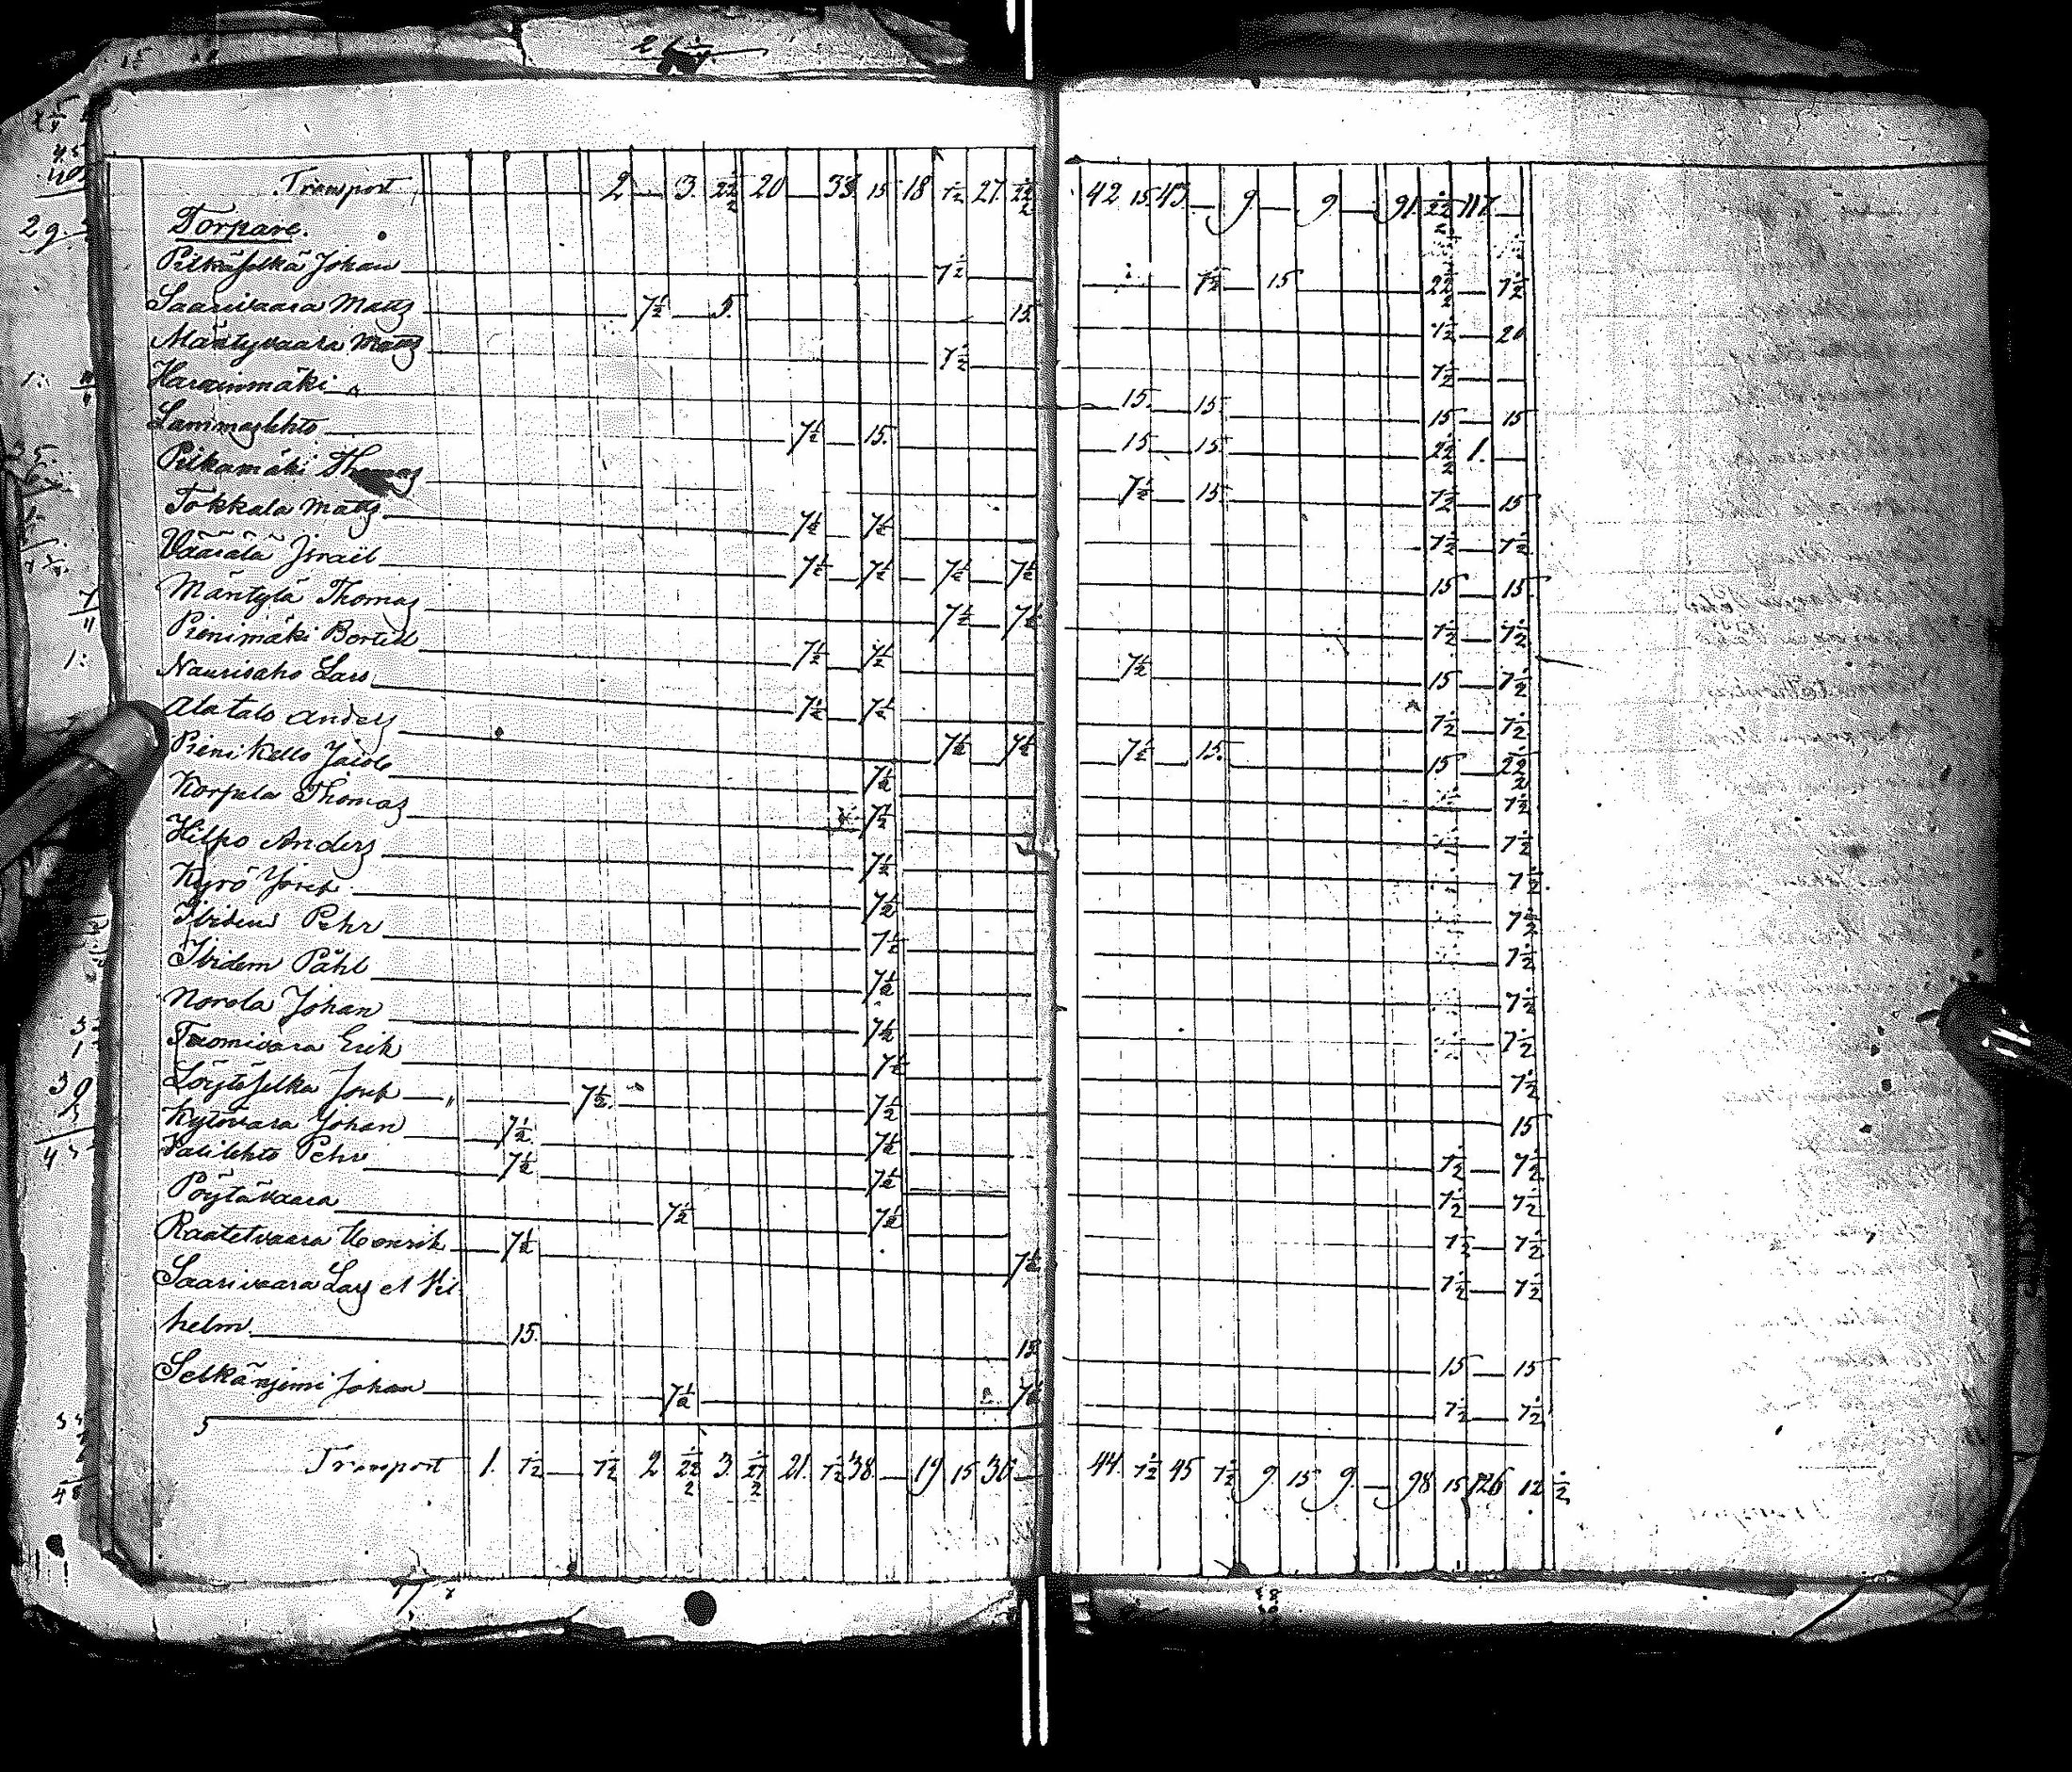 Transport 2 — 3. 22½ 20 — 33 15 18 7½ 27. 22½ 42 15 43 — 9 — 9 — 91. 22½ 117 —
Torpare.
Pitkäselkä Johan 7½ 7½ 15 22½ 7½
Saarivaara Matts 7½ 5. 15. 7½ 20
Mäntyvaara Matts 7½ 7½
15. 15. 15 15
Lammaslehto 7½ 15. 15 15. 22½ 1.
Pitkamäki Thomas 7½ 15. 7½ 15
Tokkala Matts 7½ 7½ 7½ 7½
Väärälä Israil 7½ 7½ 7½ 7½ 15 15
Mäntylä Thomas 7½ 7½ 7½ 7½
Pienimäki Bertil 7½ 7½ 7½ 15 7½
Naurisaho Lars 7½ 7½ 7½ 7½
Alatalo Anders 7½ 7½ 7½ 15. 15 22½
Pienikello Jacob 7½ 7½
Korpela Thomas 7½ 7½
Hilpo Anders 7½ 7½
Kyrö Josep 7½ 7½
Ibidem Pehr 7½ 7½
Ibidem Påhl 7½ 7½
Norola Johan 7½ 7½
Tuomivara Erik 7½ 7½
Löytöselkä Josep " 7½ 7½ 15
Kytövara Johan 7½ 7½ 7½ 7½
Valilehto Pehr 7½ 7½ 7½ 7½
Pöytävaara 7½ 7½ 7½ 7½
Raatetvaara Henrik 7½ 7½ 7½ 7½
Saarivaara Lars et Vil
helm 15. 15 15 15
Selkänjemi Johan 7½ 7½ 7½ 7½
Transport 1. 7½ — 7½ 2 22½ 3. 27½ 21. 7½ 38 — 19 15 30 — 44 7½ 45 7½ 9 15 9. — 98 15 126 12½